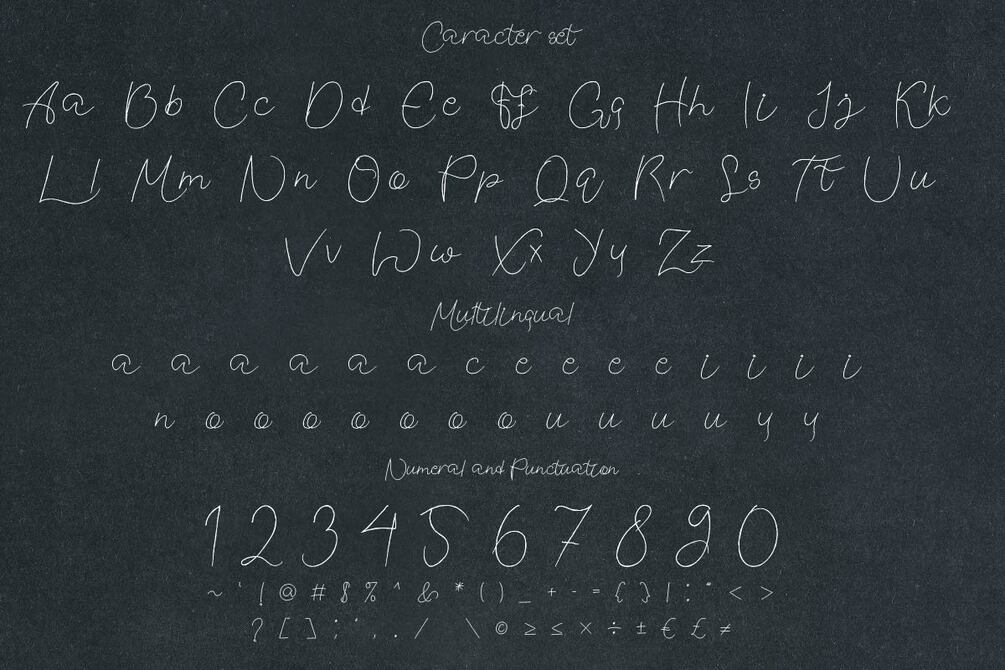 Caracter set
Aa Bb Cc Dd Ee Ff Gg Hh Ii Jj Kk
Ll Mm Nn Oo Pp Qq Rr Ss Tt Uu
Vv Ww Xx Yy Zz
Multilingual
a a a a a a c e e e e i i i i
n o o o o o o o u u u u y y
Numeral and Punctuation
1 2 3 4 5 6 7 8 9 0
~ ` ! @ # $ % ^ & * ( ) _ + - = { } | : " < >
? [ ] ; ' , . / \ © ≥ ≤ × ÷ ± € £ ≠